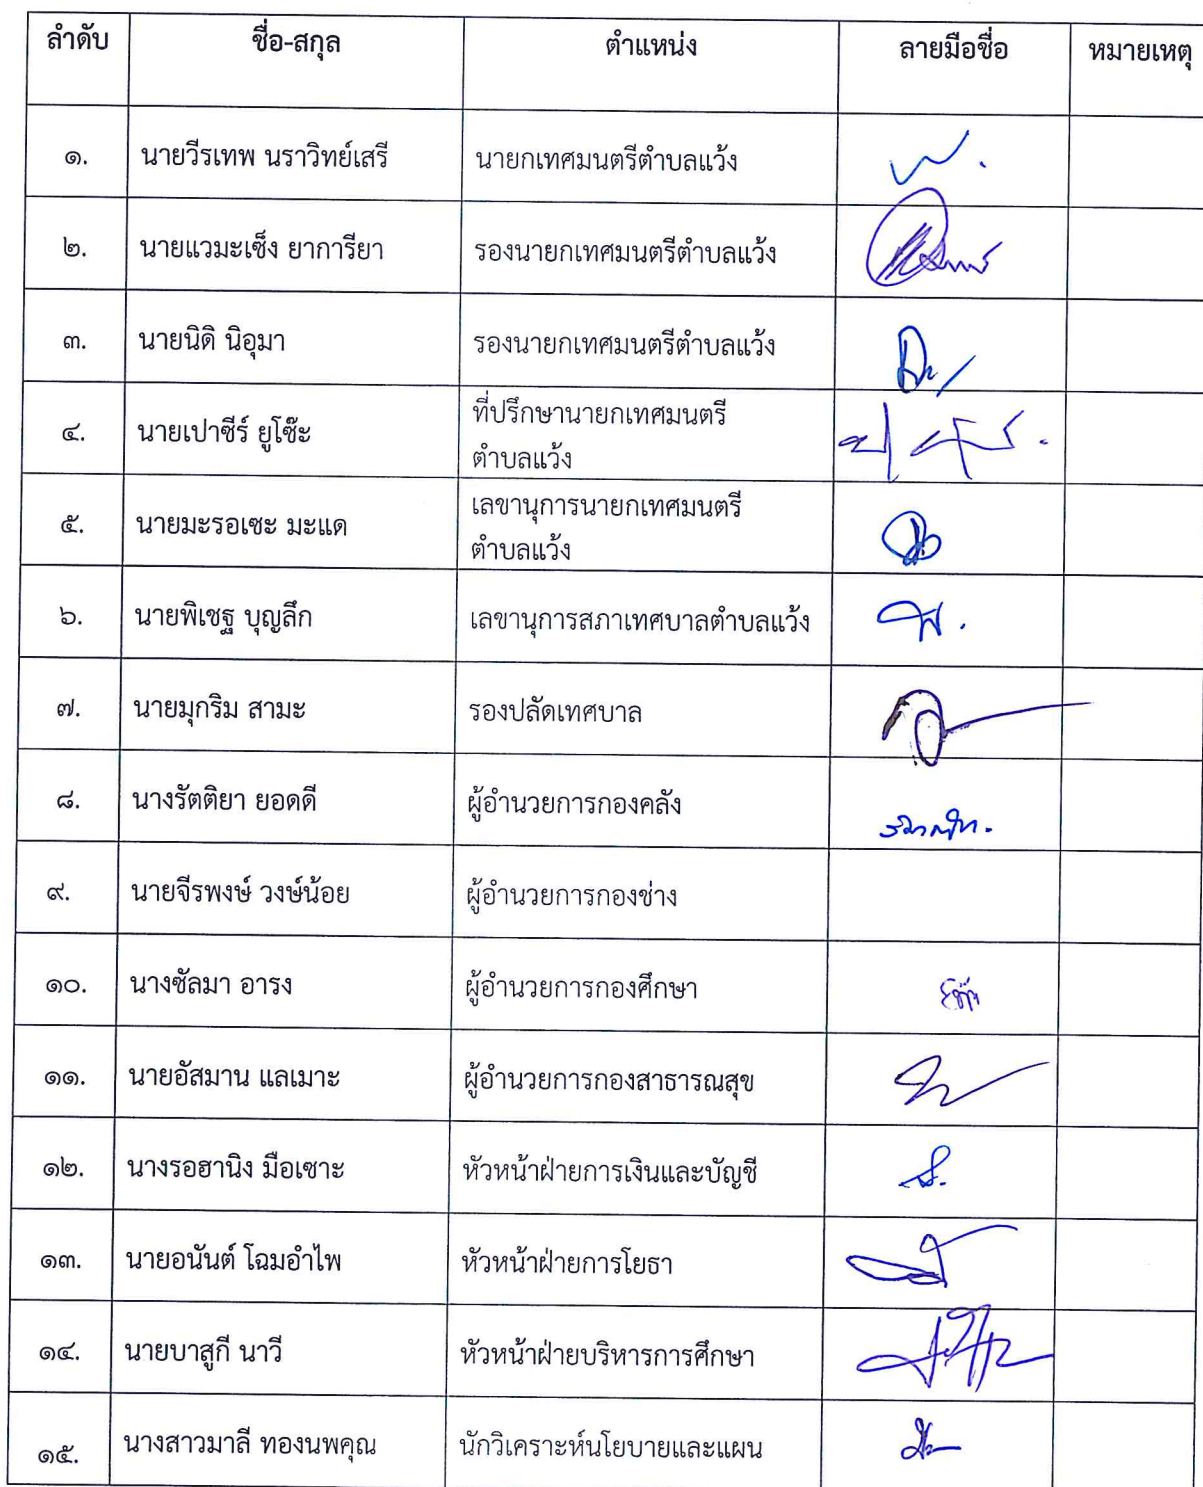 ลำดับ ชื่อ-สกุล ตำแหน่ง ลายมือชื่อ หมายเหตุ
๑. นายวีรเทพ นราวิทย์เสรี นายกเทศมนตรีตำบลแว้ง
๒. นายแวมะเซ็ง ยาการียา รองนายกเทศมนตรีตำบลแว้ง
๓. นายนิดิ นิอุมา รองนายกเทศมนตรีตำบลแว้ง
๔. นายเปาซีร์ ยูโซ๊ะ ที่ปรึกษานายกเทศมนตรี
ตำบลแว้ง
๕. นายมะรอเซะ มะแด เลขานุการนายกเทศมนตรี
ตำบลแว้ง
๖. นายพิเชฐ บุญลึก เลขานุการสภาเทศบาลตำบลแว้ง
๗. นายมุกริม สามะ รองปลัดเทศบาล
๘. นางรัตติยา ยอดดี ผู้อำนวยการกองคลัง
๙. นายจีรพงษ์ วงษ์น้อย ผู้อำนวยการกองช่าง
๑๐. นางซัลมา อารง ผู้อำนวยการกองศึกษา
๑๑. นายอัสมาน แลเมาะ ผู้อำนวยการกองสาธารณสุข
๑๒. นางรอฮานิง มือเซาะ หัวหน้าฝ่ายการเงินและบัญชี
๑๓. นายอนันต์ โฉมอำไพ หัวหน้าฝ่ายการโยธา
๑๔. นายบาสูกี นาวี หัวหน้าฝ่ายบริหารการศึกษา
๑๕. นางสาวมาลี ทองนพคุณ นักวิเคราะห์นโยบายและแผน